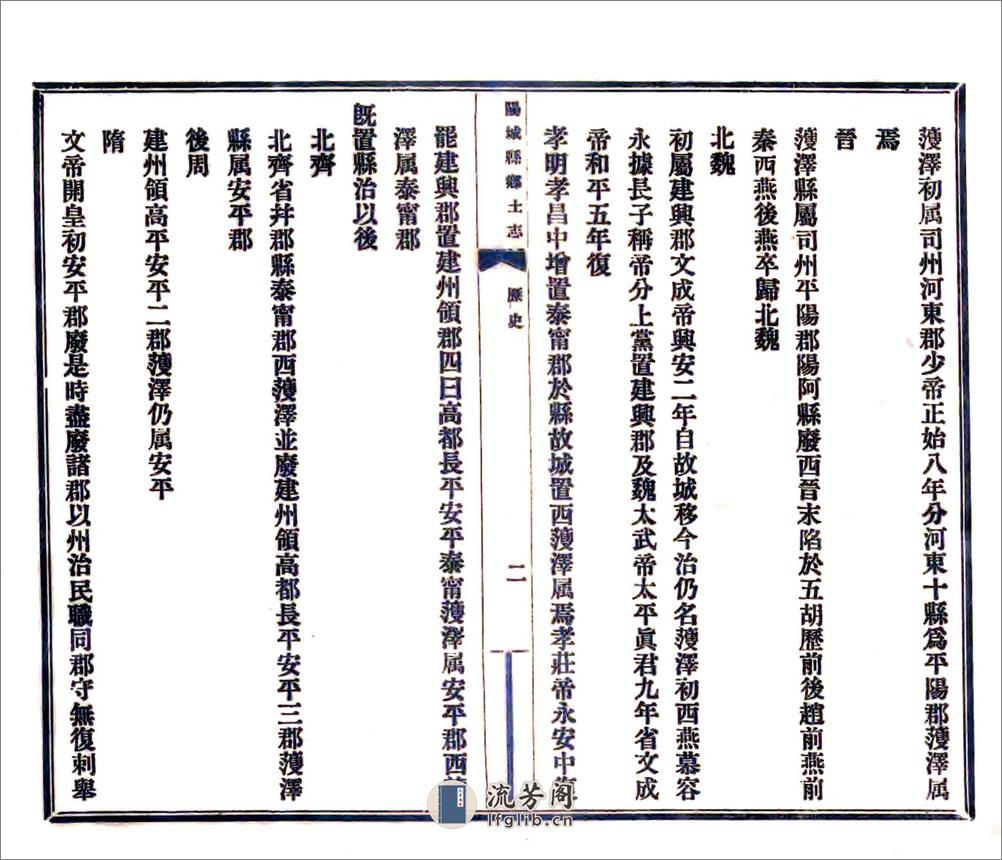 濩澤初属司州河東郡少帝正始八年分河東十縣爲平陽郡濩澤属
焉
晉
濩澤縣屬司州平陽郡陽阿縣廢西晉末陷於五胡歷前後趙前燕前
秦西燕後燕卒歸北魏
北魏
初屬建興郡文成帝興安二年自故城移今治仍名濩澤初西燕慕容
永據長子稱帝分上黨置建興郡及魏太武帝太平眞君九年省文成
帝和平五年復
孝明孝昌中增置泰甯郡於縣故城置西濩澤属焉孝莊帝永安中復
陽城縣鄉土志 歷史 二
罷建興郡置建州領郡四曰高都長平安平泰甯濩澤属安平郡西濩
澤属泰甯郡
既置縣治以後
北齊
北齊省并郡縣泰甯郡西濩澤並廢建州領高都長平安平三郡濩澤
縣属安平郡
後周
建州領高平安平二郡濩澤仍属安平
隋
文帝開皇初安平郡廢是時盡廢諸郡以州治民職同郡守無復刺舉
流芳阁
lfglib.cn